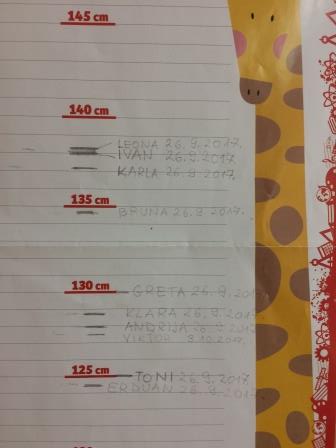 145 cm
140 cm
LEONA 26.9.2017.
IVAN 26.9.2017.
KARLA 26.9.2017.
135 cm
BRUNA 26.9.2017.
130 cm
GRETA 26.9.2017.
KLARA 26.9.2017.
ANDRIJA 26.9.2017.
VIKTOR 3.10.2017.
125 cm
TONI 26.9.2017.
ERDUAN 26.9.2017.